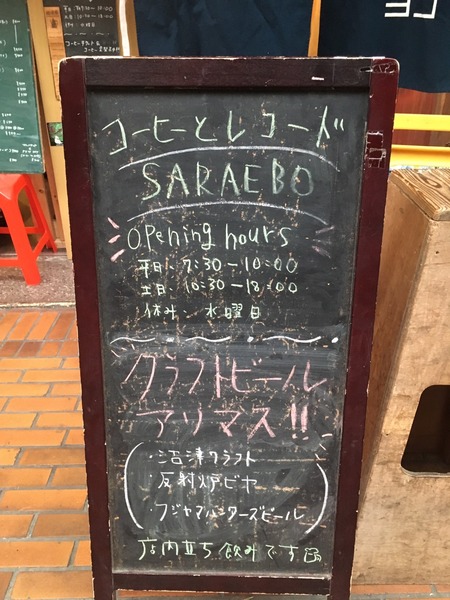 コーヒーとレコード
SARAEBO
Opening hours
平日・7:30-10:00
土日・10:30-18:00
休み・水曜日
クラフトビール
アリマス!!
・沼津クラフト
・反射炉ビヤ
・フジヤマハンターズビール
店内立ち飲みです